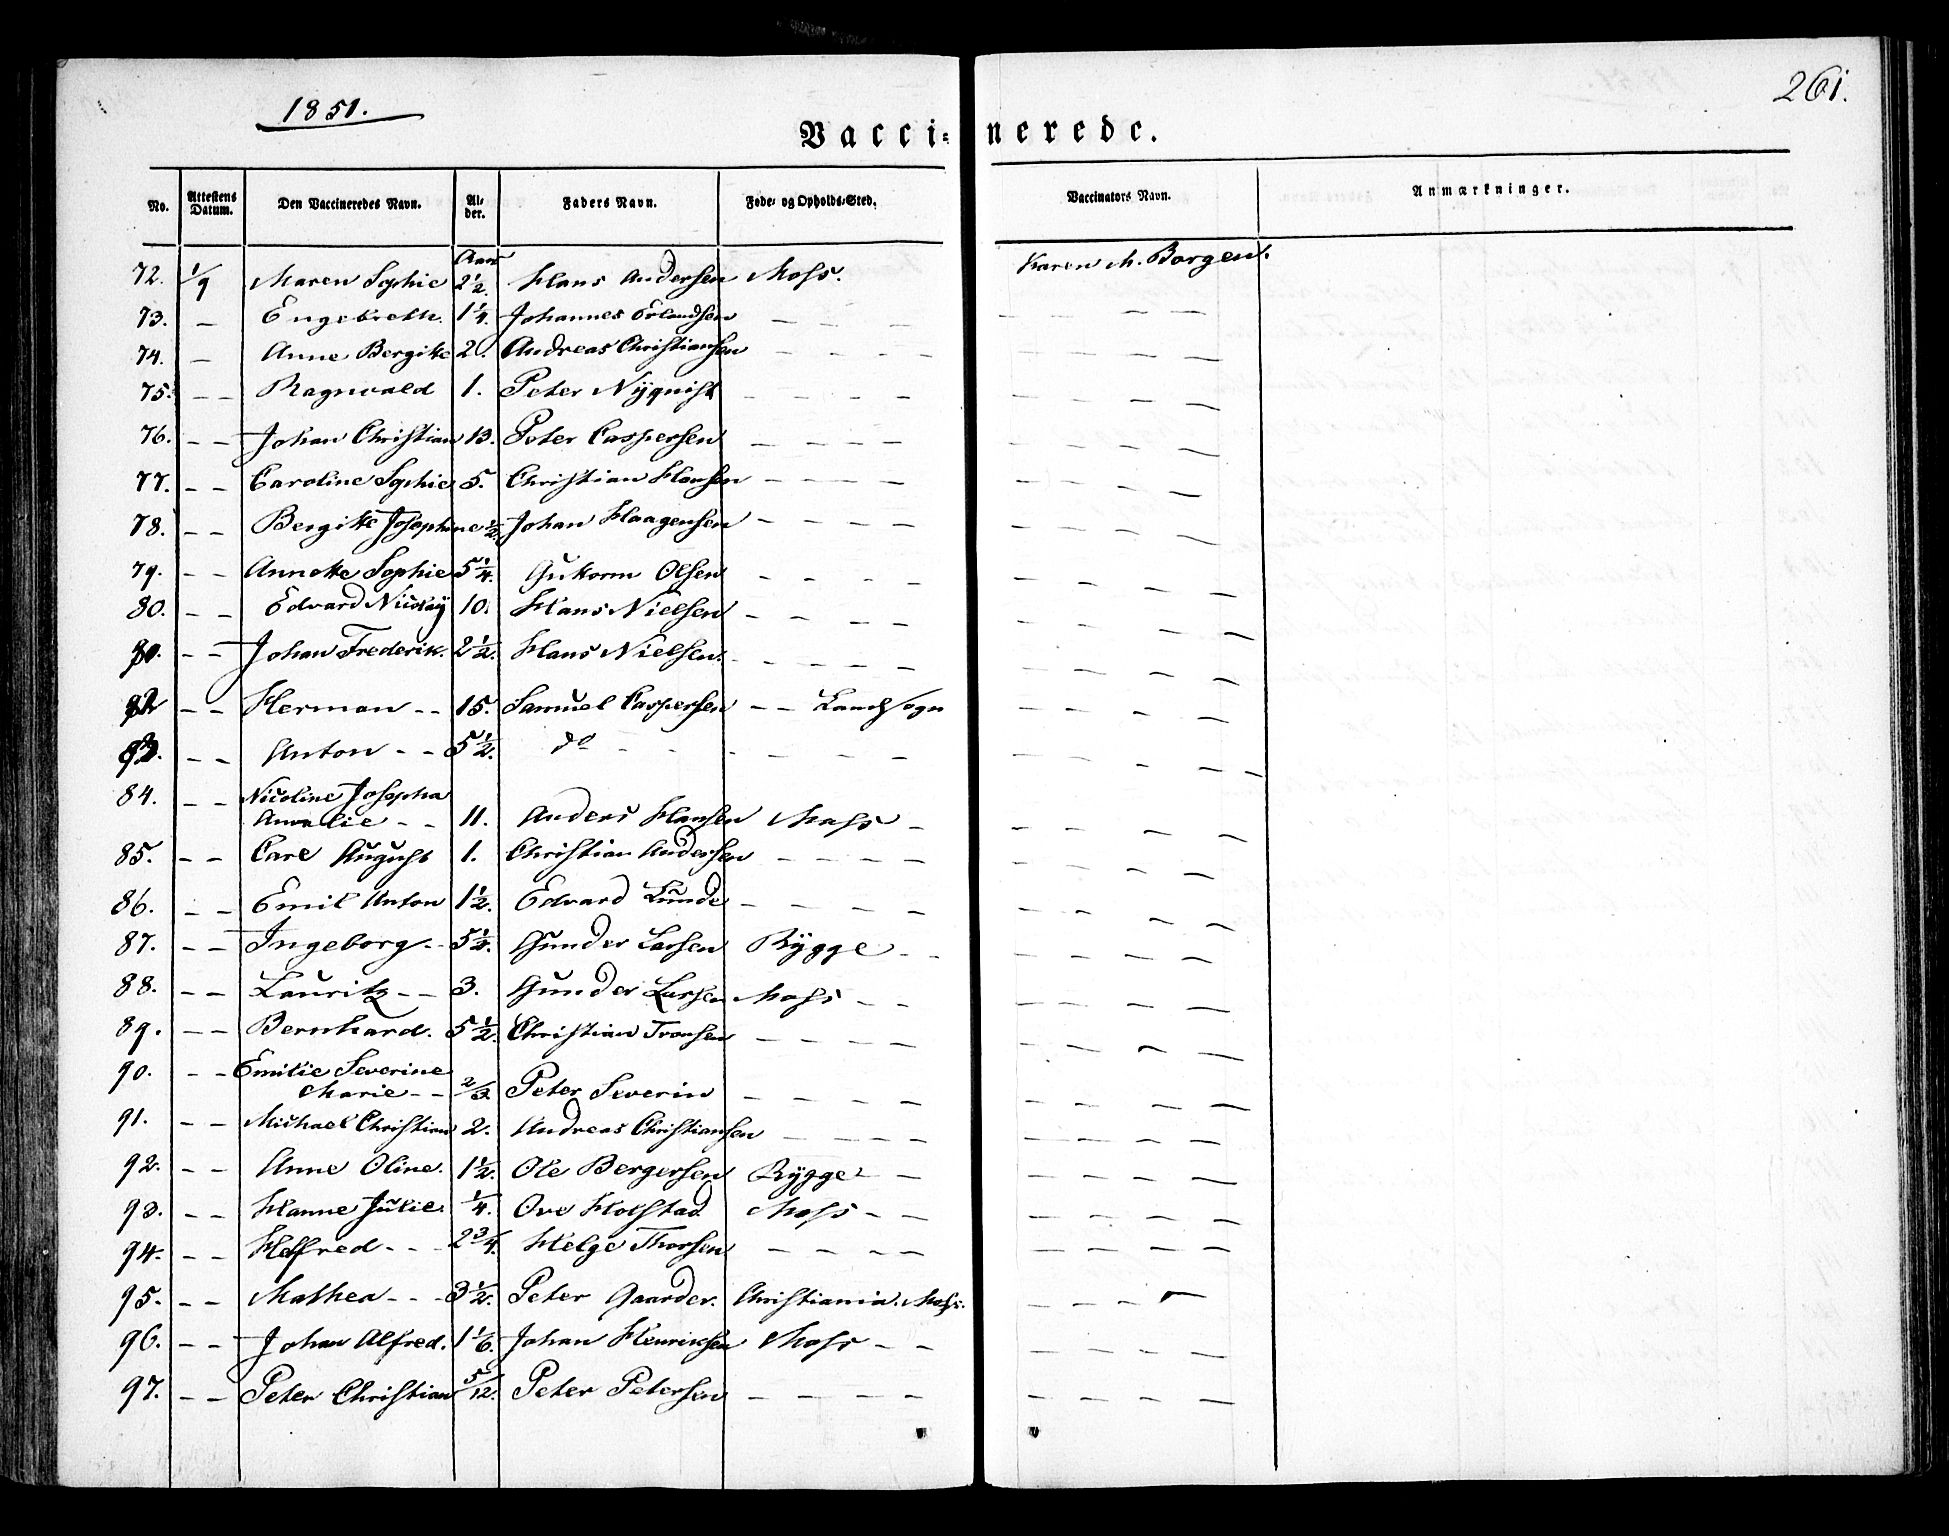 1851.
261.
Vaccinerede.
No. Attestens Datum. Den Vaccineredes Navn. Alder. Faders Navn. Føde- og Opholds-Sted. Vaccinators Navn. Anmærkninger.
Aar
72. 1/9 Maren Sophie 2 1/2. Hans Andersen Moss. Karen M. Borgen.
73. — Engebreth. 1 1/4. Johannes Erlandsen — — — — — — — —
74. — Anne Bergitte 2. Andreas Christiansen — — — — — — — —
75. — — Ragnvald 1. Peter Nÿqvist — — — — — — — —
76. — — Johan Christian 13. Peter Caspersen — — — — — — — —
77. — — Caroline Sophie 5. Christian Hansen — — — — — — — —
78. — — Bergitte Josephine 1/2. Johan Haagensen — — — — — — — —
79. — — Annette Sophie 5 1/4. Gutorm Olsen — — — — — — — —
80. — — Edvard Nicolaÿ 10. Hans Nielsen — — — — — — — — —
81. — — Johan Frederik. 2 1/2. Hans Nielsen. — — — — — — — —
82 — — Herman — — 15. Samuel Caspersen — — Landsogn — — — —
83. — — Anton — — 5 1/2. do — — — — — — — — —
84. — — Nicoline Josepha
Amalie — — 11. Anders Hansen Moss — — — — —
85. — — Carl August 1. Christian Andersen — — — — — — — —
86. — — Emil Anton 1 1/2. Edvard Lunde — — — — — — — —
87. — — Ingeborg — 5 1/4. Gunder Larsen Rÿgge — — — — — —
88. — — Lauritz — — 3. Gunder Larsen Moss — — — — — —
89. — — Bernhard. 5 1/2. Christian Tronsen — — — — — — — —
90. — — Emilie Severine
Marie — — 2/3. Peter Severin — — — — — — — —
91. — — Michael Christian 2. Andreas Christiansen — — — — — — — —
92. — — Anne Oline. 1 1/2. Ole Bergersen Rÿgge — — — — — —
93. — — Hanne Julie. 1/4. Ove Holstad Moss — — — — — —
94. — — Helfred — — — 2 3/4. Helge Thorsen — — — — — — — —
95. — — Mathea — — — 3 1/2. Peter Gaarder. Christiania. Moss. — — — —
96. — — Johan Alfred. 1 1/6. Johan Henriksen Moss — — — — — —
97. — — Peter Christian 5/12. Peter Petersen — — — — — — — —